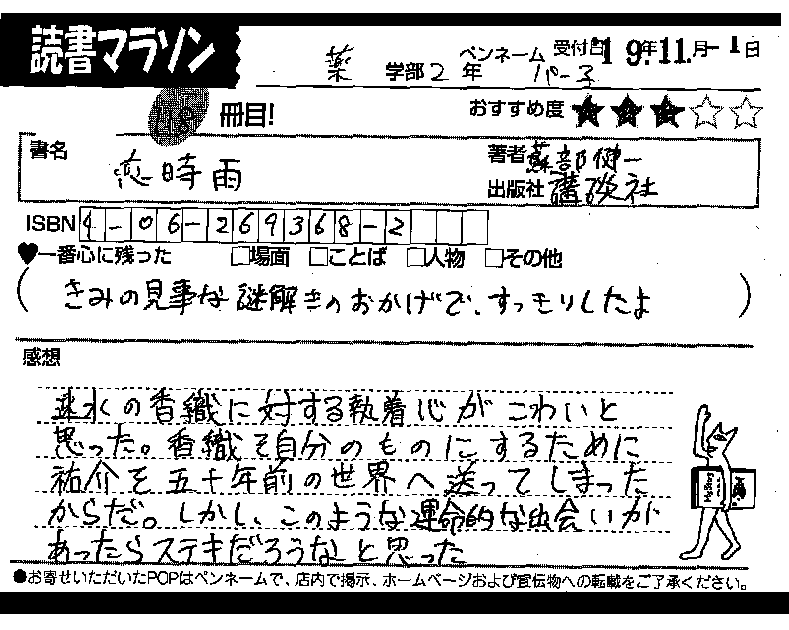 読書マラソン
薬 学部 2 年
ペンネーム パー子
受付日 '19年11月-1日
118 冊目!
おすすめ度 ★★★☆☆
書名 恋時雨
著者 蘇部健一
出版社 講談社
ISBN 4-06-269368-2
♥一番心に残った □場面 □ことば □人物 □その他
(きみの見事な謎解きのおかげで、すっきりしたよ)
感想
速水の香織に対する執着心がこわいと
思った。香織を自分のものにするために
祐介を五十年前の世界へ送ってしまった
からだ。しかし、このような運命的な出会いが
あったらステキだろうなと思った
●お寄せいただいたPOPはペンネームで、店内で掲示、ホームページおよび宣伝物への転載をご了承ください。